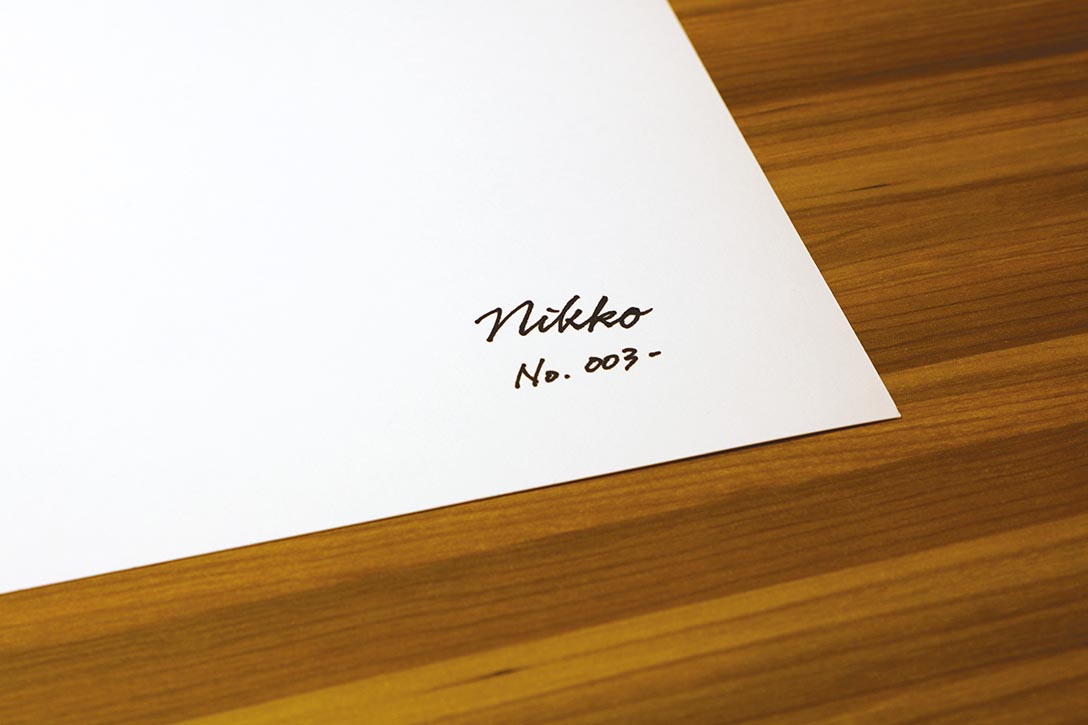 Nikko
No. 003-